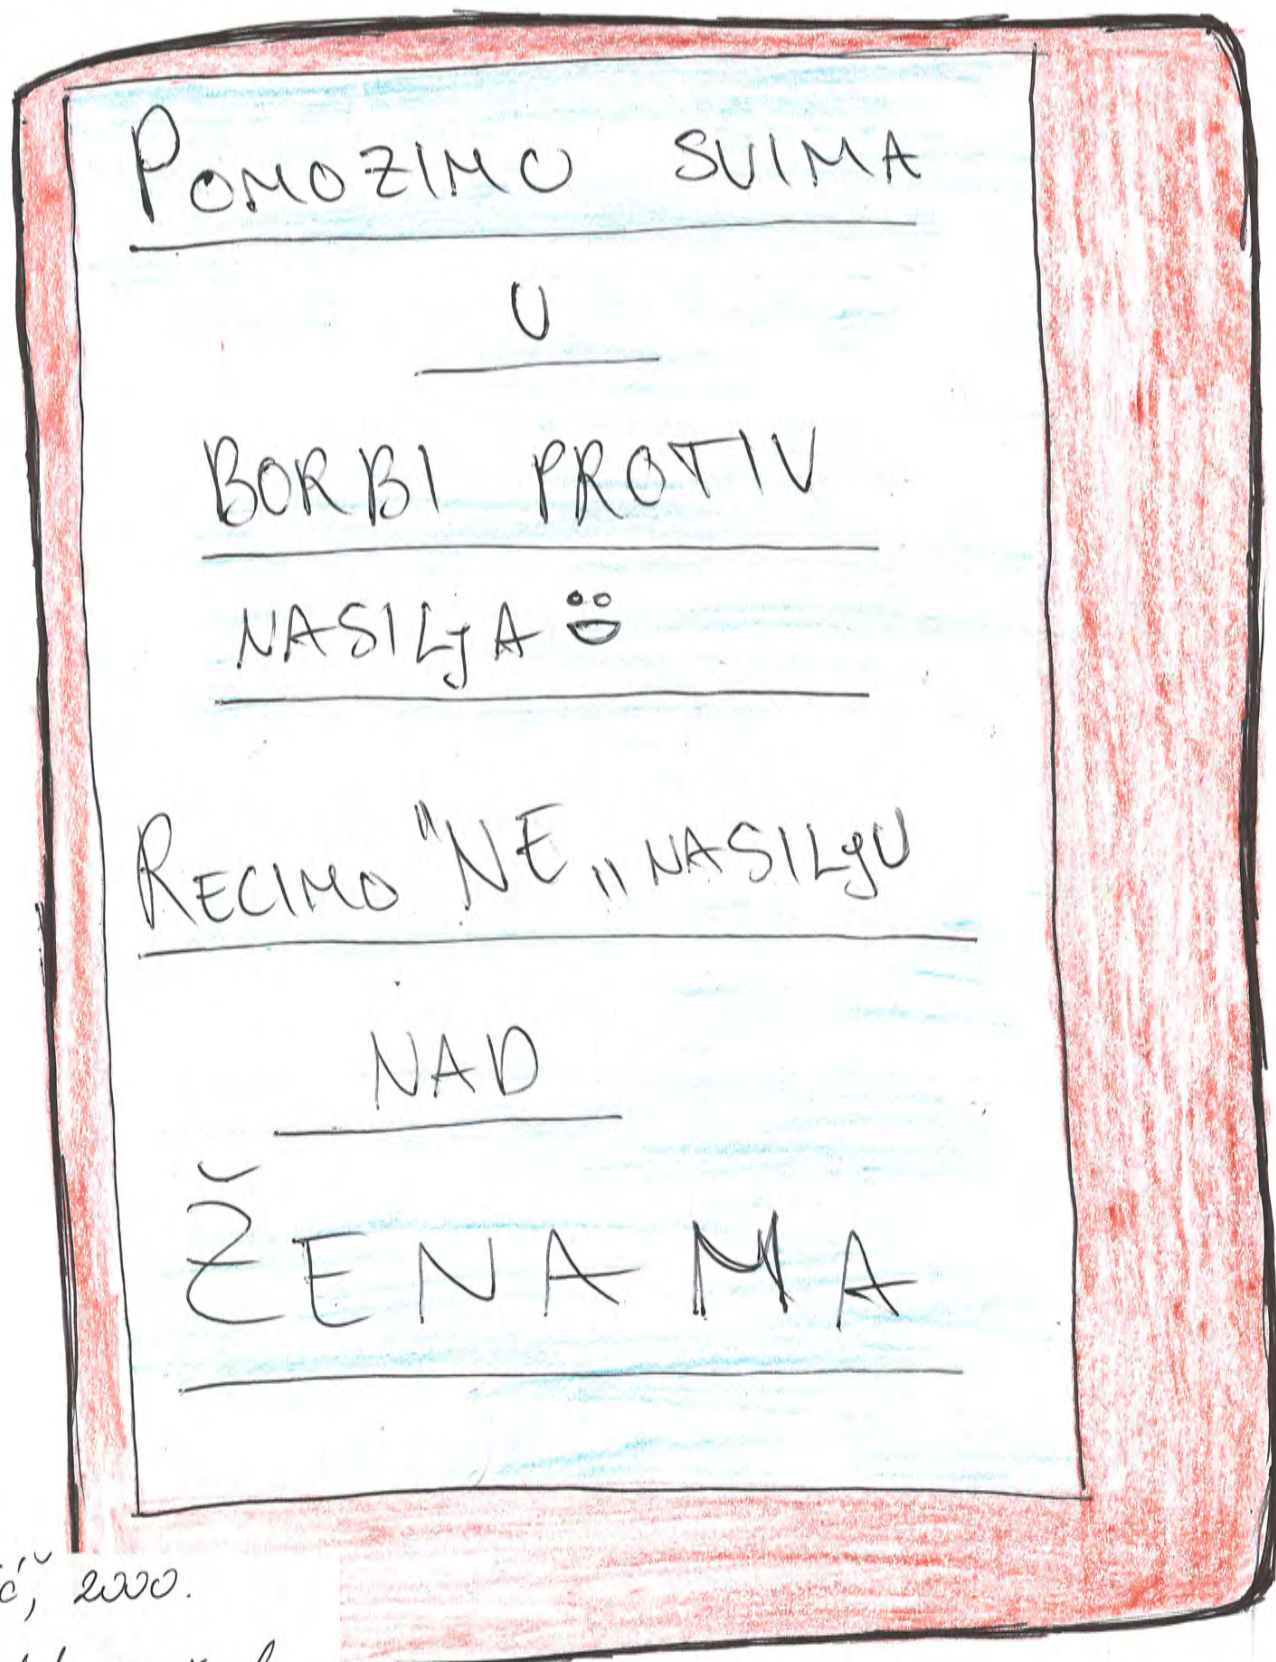 POMOZIMO SVIMA
U
BORBI PROTIV
NASILjA
RECIMO "NE„ NASILjU
NAD
ŽENAMA
2000.